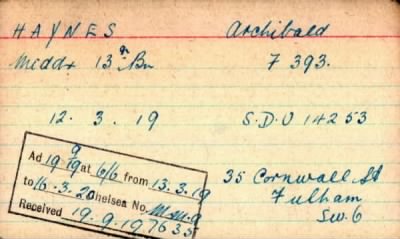 HAYNES Archibald
Middx 13 Bn 7 393.
12. 3. 19 S.D.U 14253
9
Ad 19 19 at 6/6 from 13.3.19
to 16.3.20 Chelsea No. M.M.9
Received 19.9.19 7635
35 Cornwall St
Fulham
Sw.6